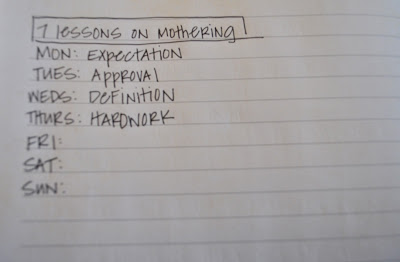 7 lessons on mothering
MON: Expectation
TUES: Approval
WEDS: Definition
THURS: HARDWORK
FRI:
SAT:
SUN: